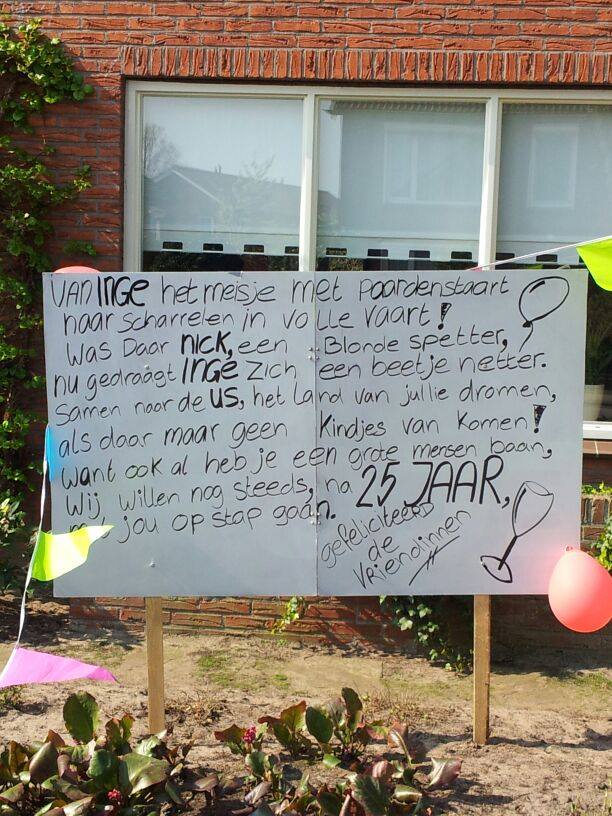 VAN INGE het meisje met paardenstaart
naar scharrelen in volle vaart!
Was Daar NICK, een Blonde spetter,
nu gedraagt INGE zich een beetje netter.
Samen naar de US, het Land van jullie dromen,
als daar maar geen Kindjes van komen!
want ook al heb je een grote mensen baan,
Wij willen nog steeds, na 25 JAAR,
jou op stap gaan.
gefeliciteerd
de
Vriendinnen